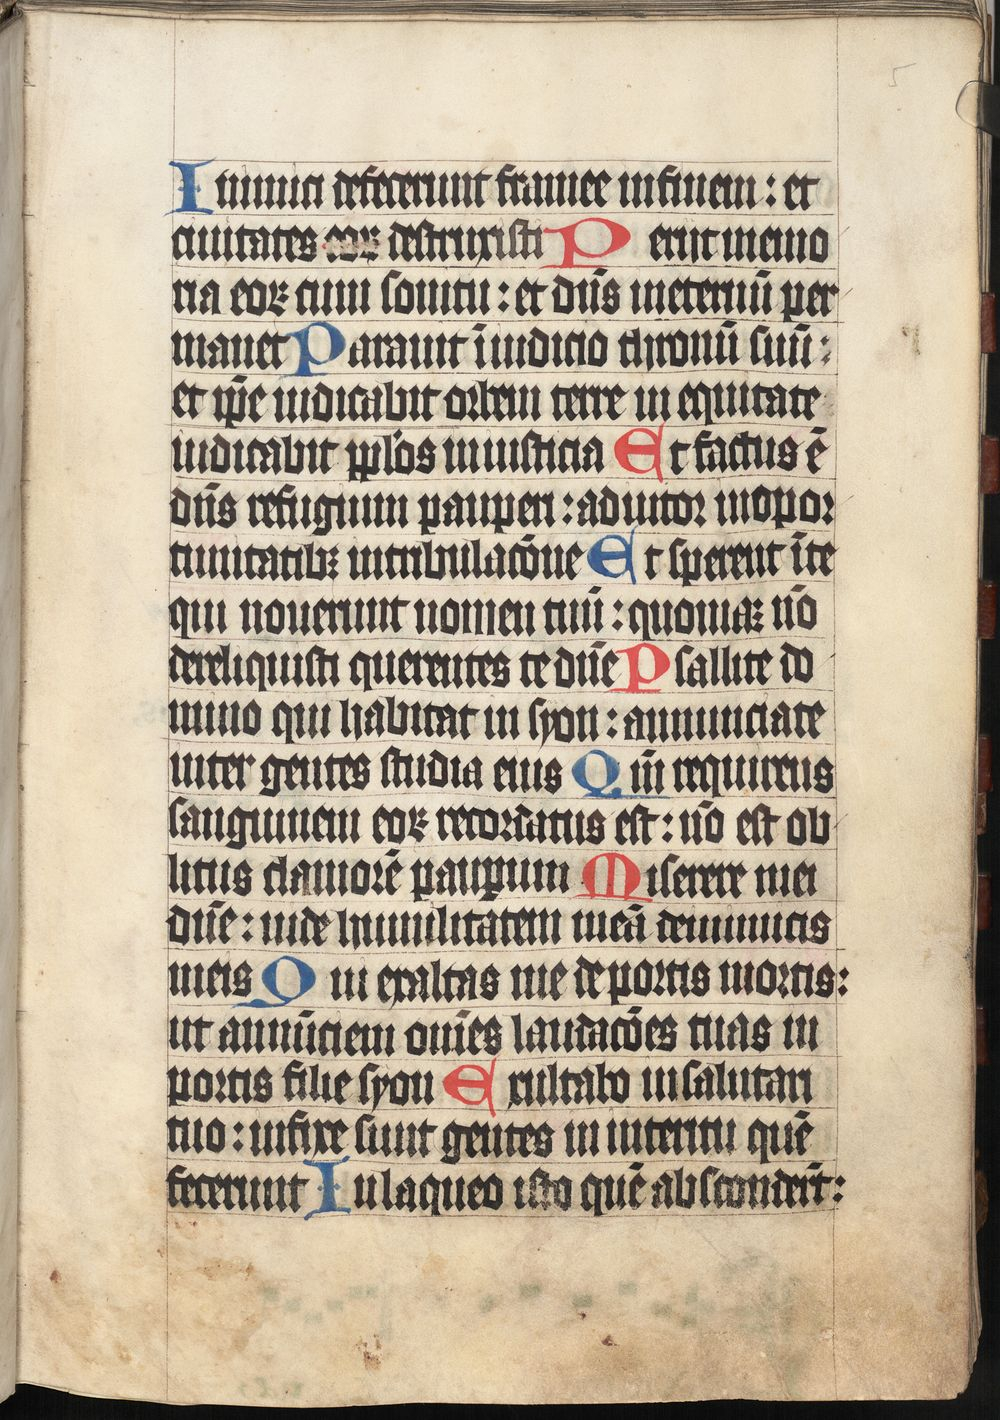 5
Inimici defecerunt framee infinem : et
ciuitates eoꝝ destruxisti Periit memo
ria eoꝝ cum sonitu : et dn̄s ineternū per
manet Parauit ī iudicio thronū suū :
et ip̄e iudicabit orbem terre in equitate
iudicabit pp̄l'os in iusticia Et factus ē
dn̄s refugium pauperi : adiutor inopor
tunitatibꝫ intribulac̄one Et sperent ī te
qui nouerunt nomen tuū : quoniaꝫ nō
dereliquisti querentes te dn̄e Psallite do
mino qui habitat in syon : annunciate
inter gentes studia eius Qm̄ requirens
sanguinem eoꝝ recordatus est : nō est ob
litus clamorē paupum Miserere mei
dn̄e : uide humilitatem meā deinimicis
meis Qui exaltas me de portis mortis :
ut annūciem om̄es laudac̄oes tuas in
portis filie syon Exultabo in salutari
tuo : infixe sunt gentes in interitu quē
fecerunt In laqueo isto quē absconder̄t :